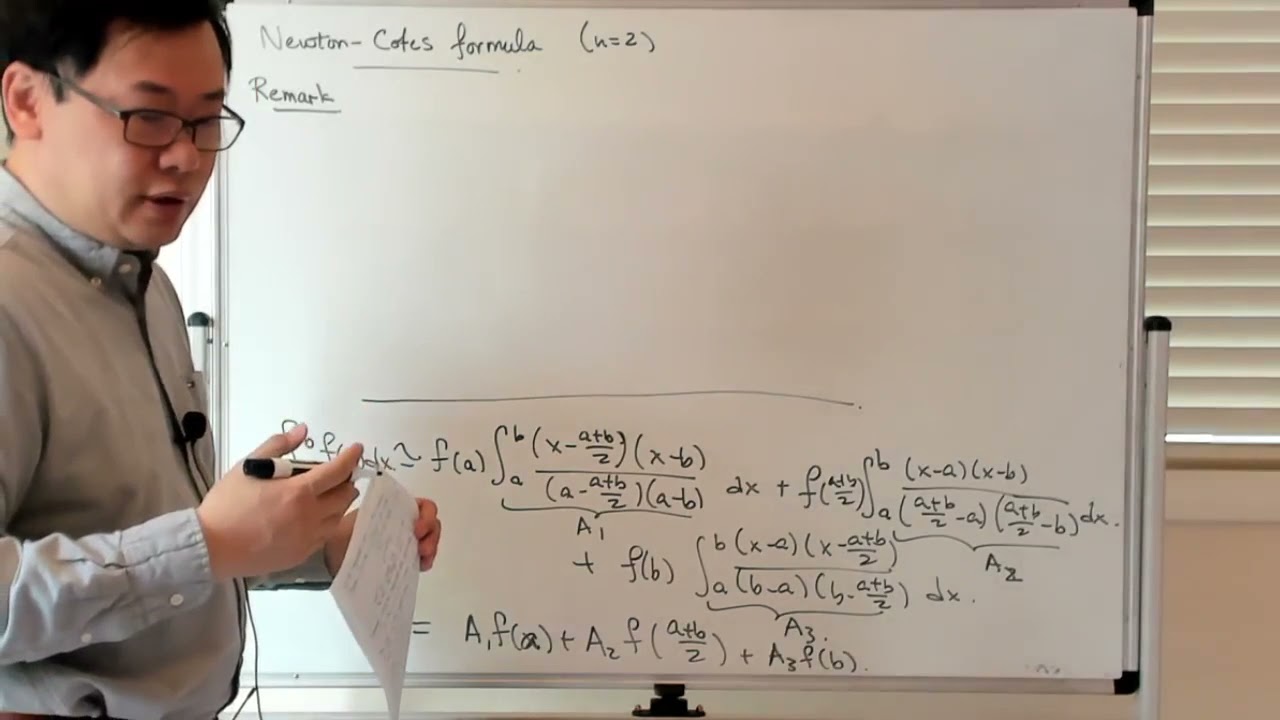 Newton-Cotes formula (n=2)
Remark
∫ₐᵇ f(x)dx ≈ f(a) ∫ₐᵇ (x-(a+b)/2)(x-b) / (a-(a+b)/2)(a-b) dx + f((a+b)/2) ∫ₐᵇ (x-a)(x-b) / ((a+b)/2-a)((a+b)/2-b) dx.
A₁ A₂
+ f(b) ∫ₐᵇ (x-a)(x-(a+b)/2) / (b-a)(b-(a+b)/2) dx.
A₃.
= A₁f(a) + A₂ f((a+b)/2) + A₃f(b).